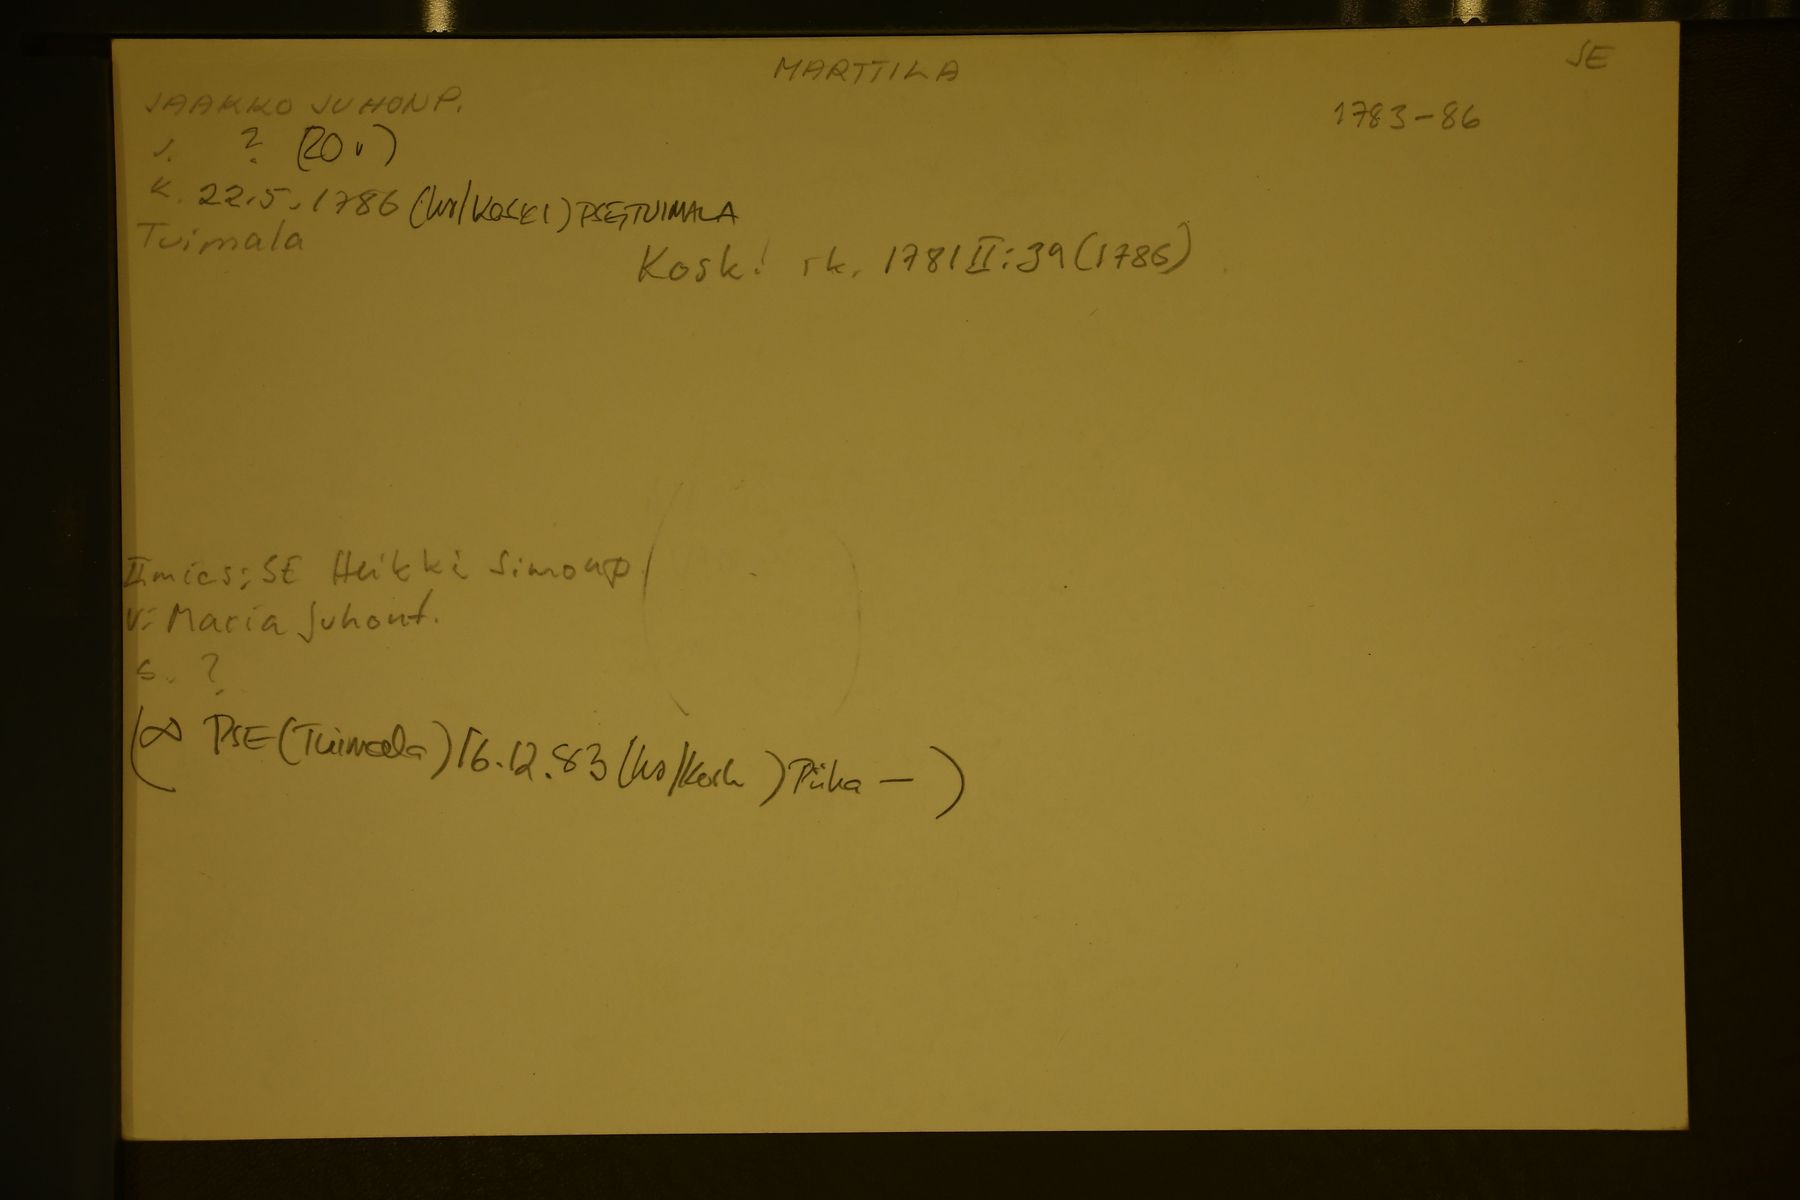 MARTTILA
SE
JAAKKO JUHONP.
1783-86
s. ? (20 v)
k. 22.5.1786 (ks/KOSKI) PSE, TUIMALA
Tuimala
Koski rk. 1781 II:39 (1786)
II mies: SE Heikki Simonp.
v: Maria Juhont.
s. ?
(∞ PSE (Tuimala) 16.12.83 (ks/Koski) Piika — )